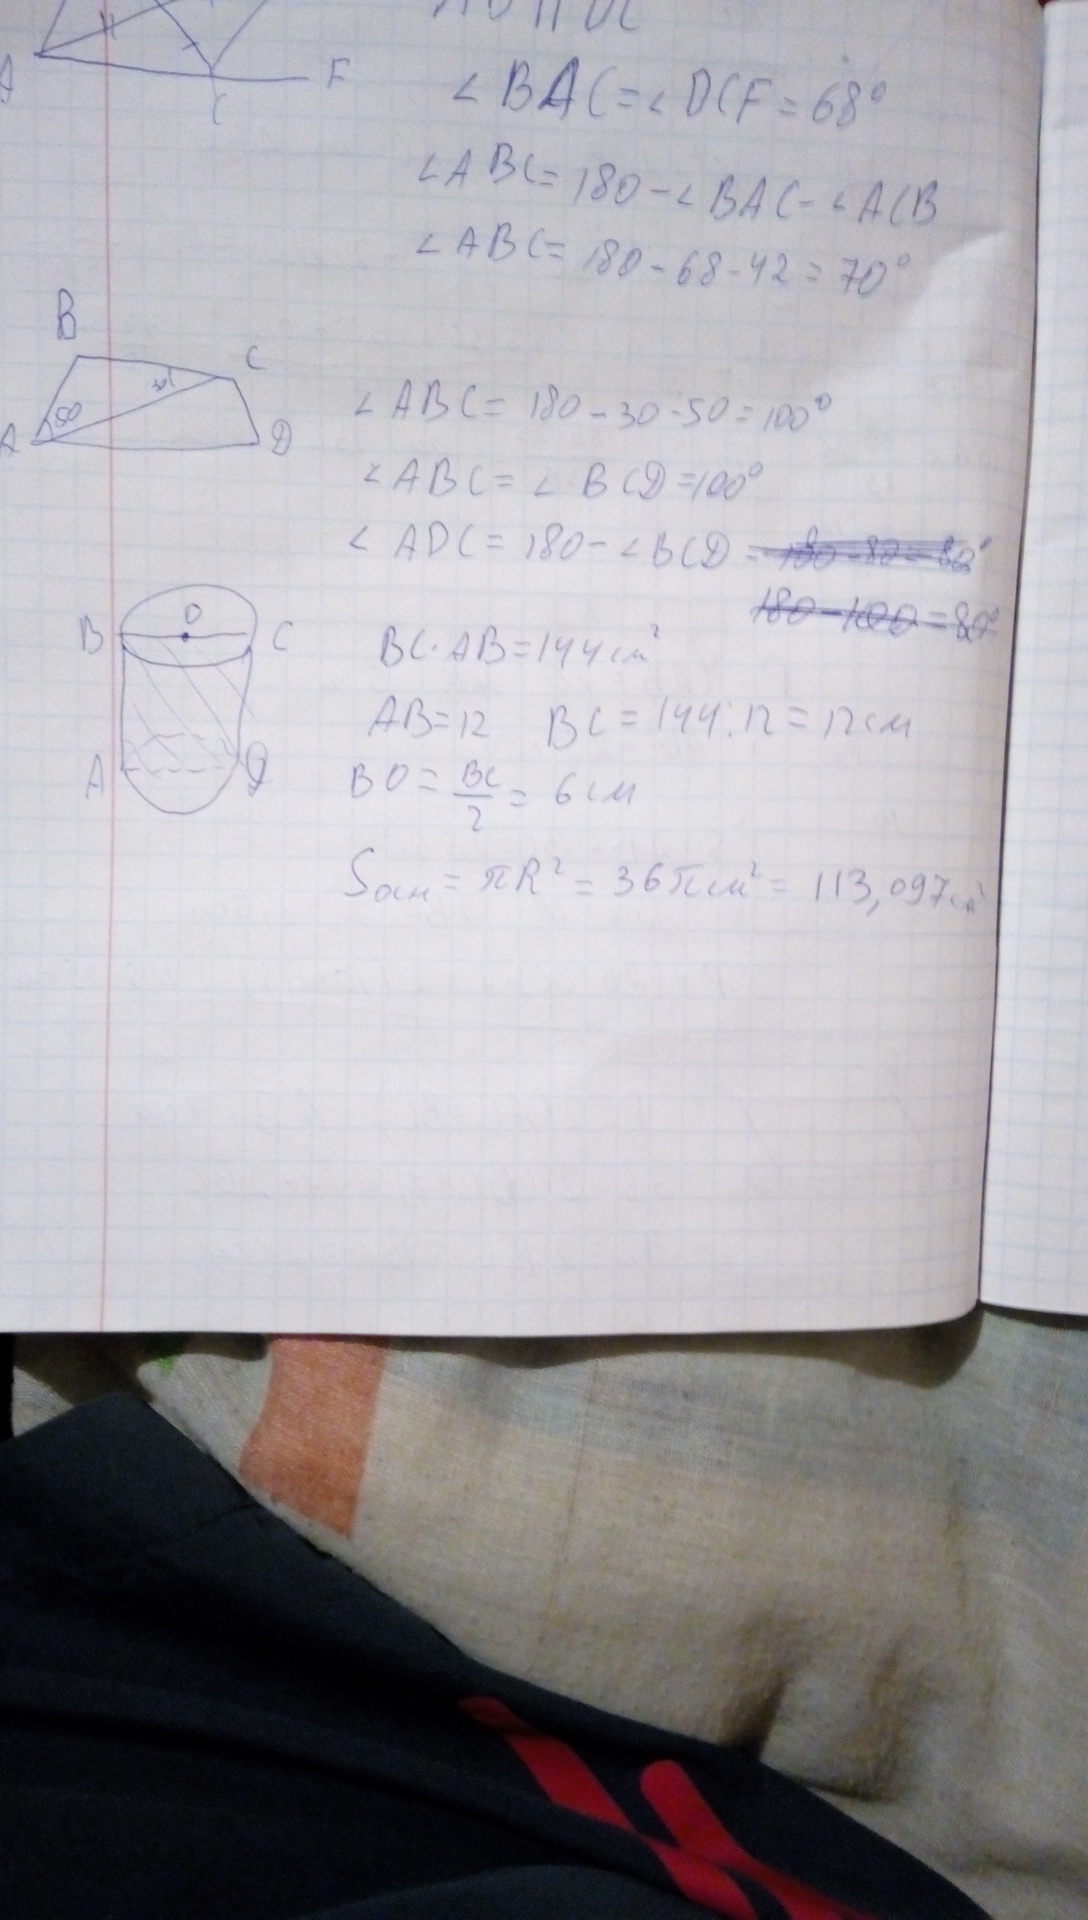 A
C
F
∠BAC=∠DCF=68°
∠ABC=180-∠BAC-∠ACB
∠ABC=180-68-42=70°
B
C
50
A
D
∠ABC=180-30-50=100°
∠ABC=∠BCD=100°
∠ADC=180-∠BCD=
180-100=80°
B
O
C
A
D
BC·AB=144см²
AB=12 BC=144:12=12см
BO=BC/2=6см
Sосн=πR²=36πсм²=113,097см²